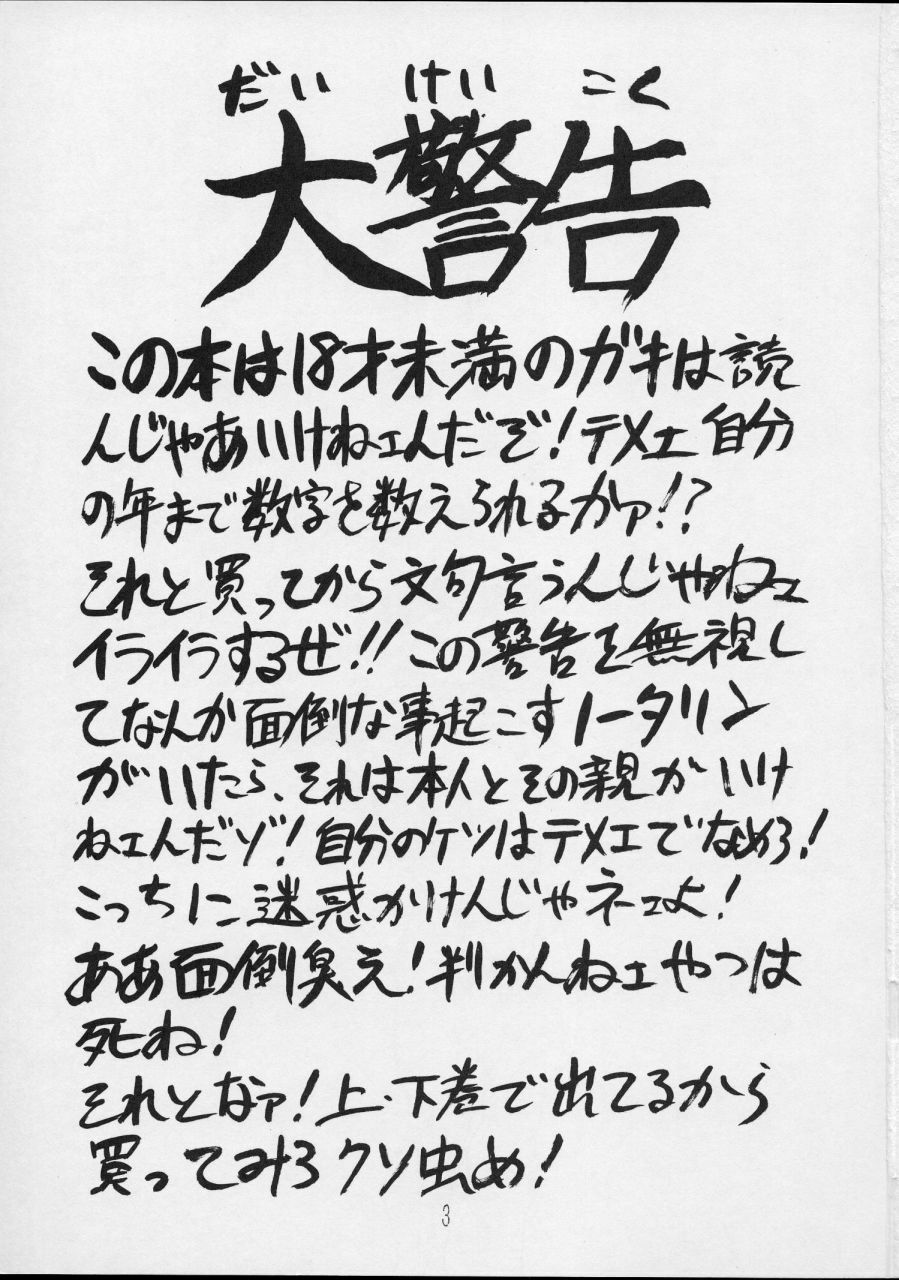 だいけいこく
大警告
この本は18才未満のガキは読
んじゃあいけねェんだぞ！テメェ自分
の年まで数字を数えられるかァ！？
それと買ってから文句言うんじゃねェ
イライラするぜ！！この警告を無視し
てなんか面倒な事起こすノータリン
がいたら、それは本人とその親がいけ
ねェんだゾ！自分のケツはテメエでなめろ！
こっちに迷惑かけんじゃネェよ！
ああ面倒臭え！判かんねェやつは
死ね！
それとなァ！上・下巻で出てるから
買ってみろクソ虫め！
3